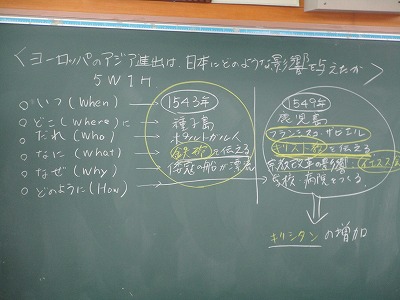 <ヨーロッパのアジア進出は、日本にどのような影響を与えたか>
5W1H
○いつ(When) → 1543年 1549年
○どこ(Where)に 種子島 鹿児島
○だれ(Who) ポルトガル人 フランシスコ・ザビエル
○なに(What) 鉄砲を伝える キリスト教を伝える
○なぜ(Why) 倭寇の船が漂着 宗教改革の影響:イエズス会
○どのように(How) → 学校・病院をつくる。
キリシタンの増加